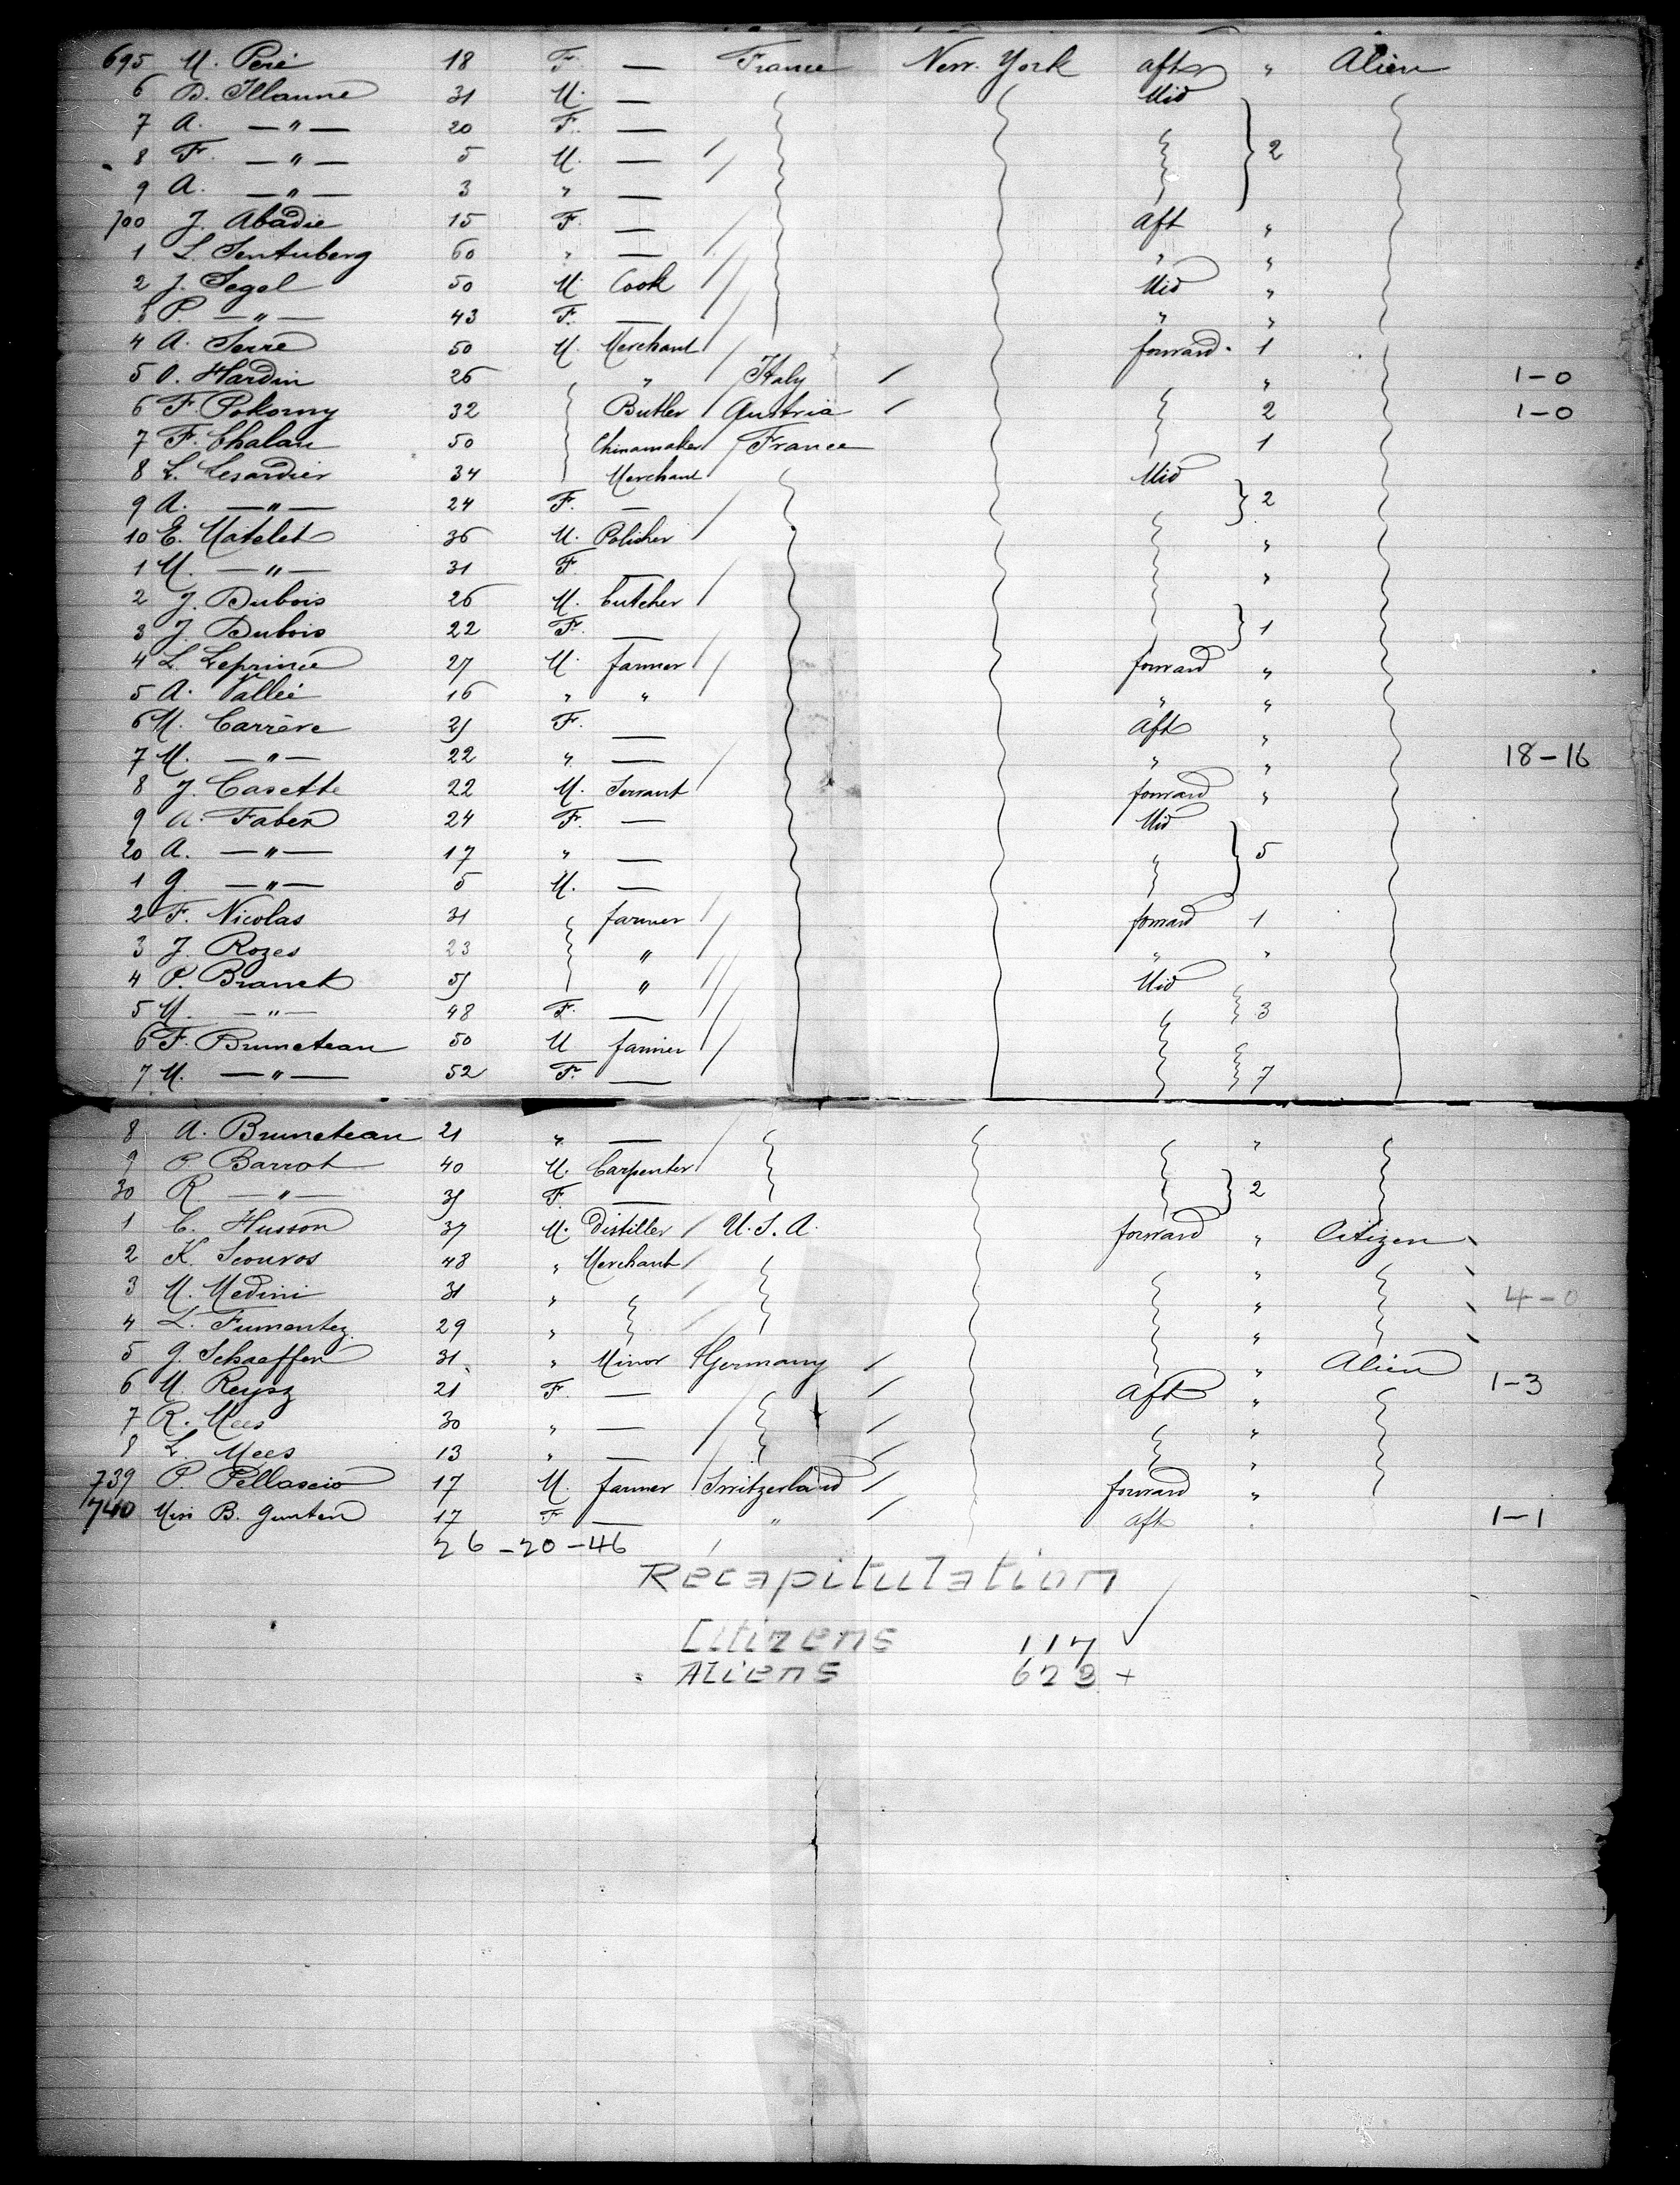 695 M. Peré 18 F. — France New. York aft " Alien
6 D. Illanne 31 M. — Mid
7 A. — " — 20 F. —
8 F. — " — 5 M. — 2
9 A. — " — 3 " —
700 J. Abadie 15 F. — aft "
1 L. Sentuberg 60 " — " "
2 J. Segol 50 M. Cook Mid "
3 P. — " — 43 F. — " "
4 A. Serre 50 M. Merchant forward. 1
5 O. Hardin 26 " Italy " 1-0
6 F. Pokorny 32 Butler Austria 2 1-0
7 F. Chalan 50 Chinamaker France 1
8 L. Lesardier 34 Merchant Mid
9 A. — " — 24 F. — 2
10 E. Matelet 36 M. Polisher "
1 M. — " — 31 F. — "
2 J. Dubois 26 M. butcher
3 J. Dubois 22 F. — 1
4 L. Leprince 27 M. farmer forward "
5 A. Vallée 16 " " " "
6 M. Carrère 25 F. — Aft "
7 M. — " — 22 " — " " 18-16
8 J Casette 22 M. Servant forward "
9 A. Faber 24 F. — Mid
20 A. — " — 17 " — " 5
1 G. — " — 5 M. —
2 F. Nicolas 31 farmer forward 1
3 J. Rozes 23 " " "
4 P. Branet 55 " Mid
5 M. — " — 48 F. — 3
6 F. Bruneteau 50 M farmer
7 M. — " — 52 F. — 7
8 A. Bruneteau 21 " — "
9 P. Barrot 40 M. Carpenter
30 R — " — 35 F. — 2
1 C. Husson 37 M. Distiller U.S.A. forward " Citizen
2 K. Scouros 48 " Merchant "
3 M. Medini 31 " " 4-0
4 L. Fumentez 29 " "
5 G. Schaeffer 31 " Minor Germany " Alien
6 M. Reysz 21 F. — aft " 1-3
7 R. Mees 30 " — "
8 L. Mees 13 " — "
739 P. Pellascio 17 M. farmer Switzerland forward "
740 Miss B. Gunten 17 F — " aft " 1-1
26-20-46
Récapitulation
Citizens 117 ✓
Aliens 623 +